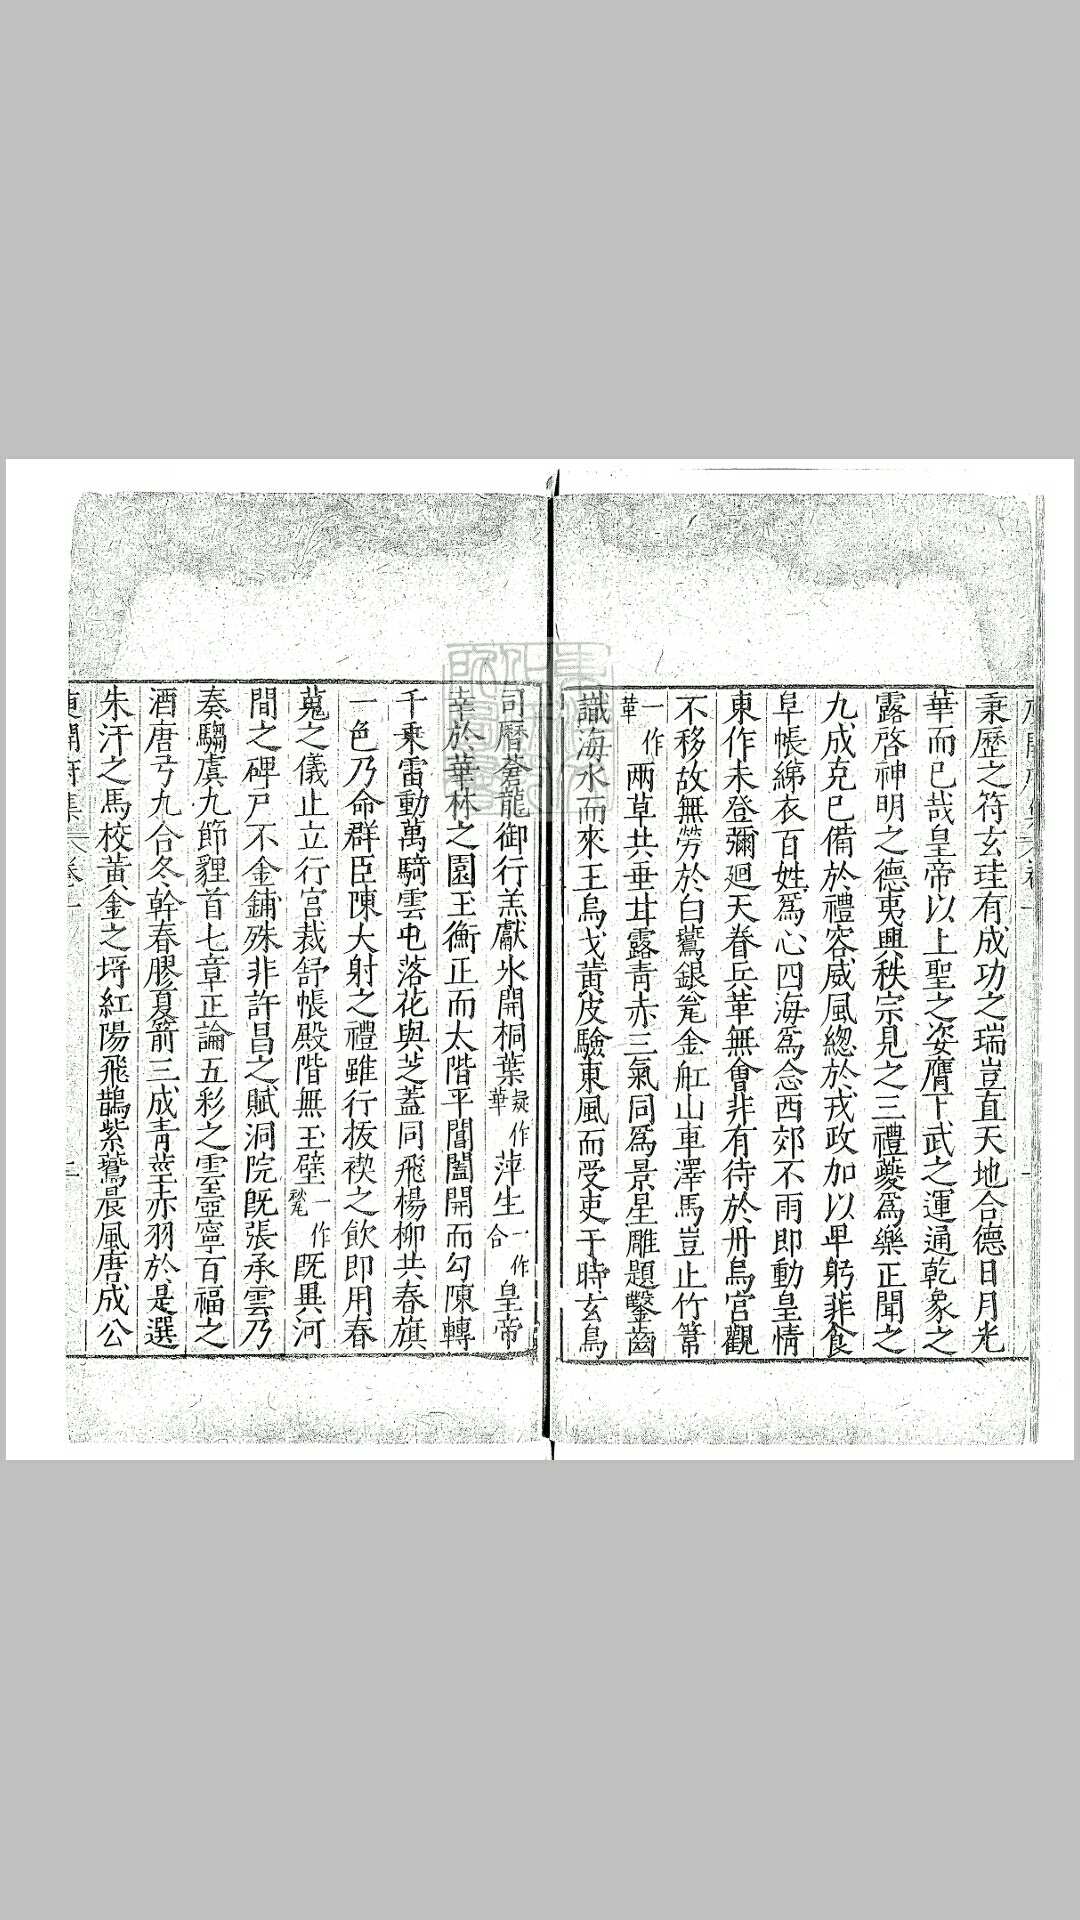 秉歷之符玄珪有成功之瑞豈直天地合德日月光
華而已哉皇帝以上聖之姿膺下武之運通乾象之
露啓神明之德夷興秩宗見之三禮夔爲樂正聞之
九成克已備於禮容威風總於戎政加以甲躬菲食
皁帳綈衣百姓爲心四海爲念西郊不雨即動皇情
東作未登彌廻天眷兵革無會非有待於丹烏宮觀
不移故無勞於白鷰銀瓮金舩山車澤馬豈止竹葦
一作華兩草共垂甘露青赤三氣同爲景星雕題鑿齒
識海水而來王烏弋黃皮驗東風而受吏于時玄鳥
司曆蒼龍御行羔獻氷開桐葉疑作華萍生一作合皇帝
幸於華林之園玉衡正而太階平閶闔開而勾陳轉
千乘雷動萬騎雲屯落花與芝蓋同飛楊柳共春旗
一色乃命群臣陳大射之禮雖行拔禊之飲即用春
蒐之儀止立行宮裁舒帳殿階無玉璧一作甃既異河
間之碑戸不金鋪殊非許昌之賦洞院既張承雲乃
奏騶虞九節貍首七章正論五彩之雲壺寧百福之
酒唐弓九合冬幹春膠夏箭三成青莖赤羽於是選
朱汗之馬校黃金之埒紅陽飛鵲紫鷰晨風唐成公
庾開府集 卷一